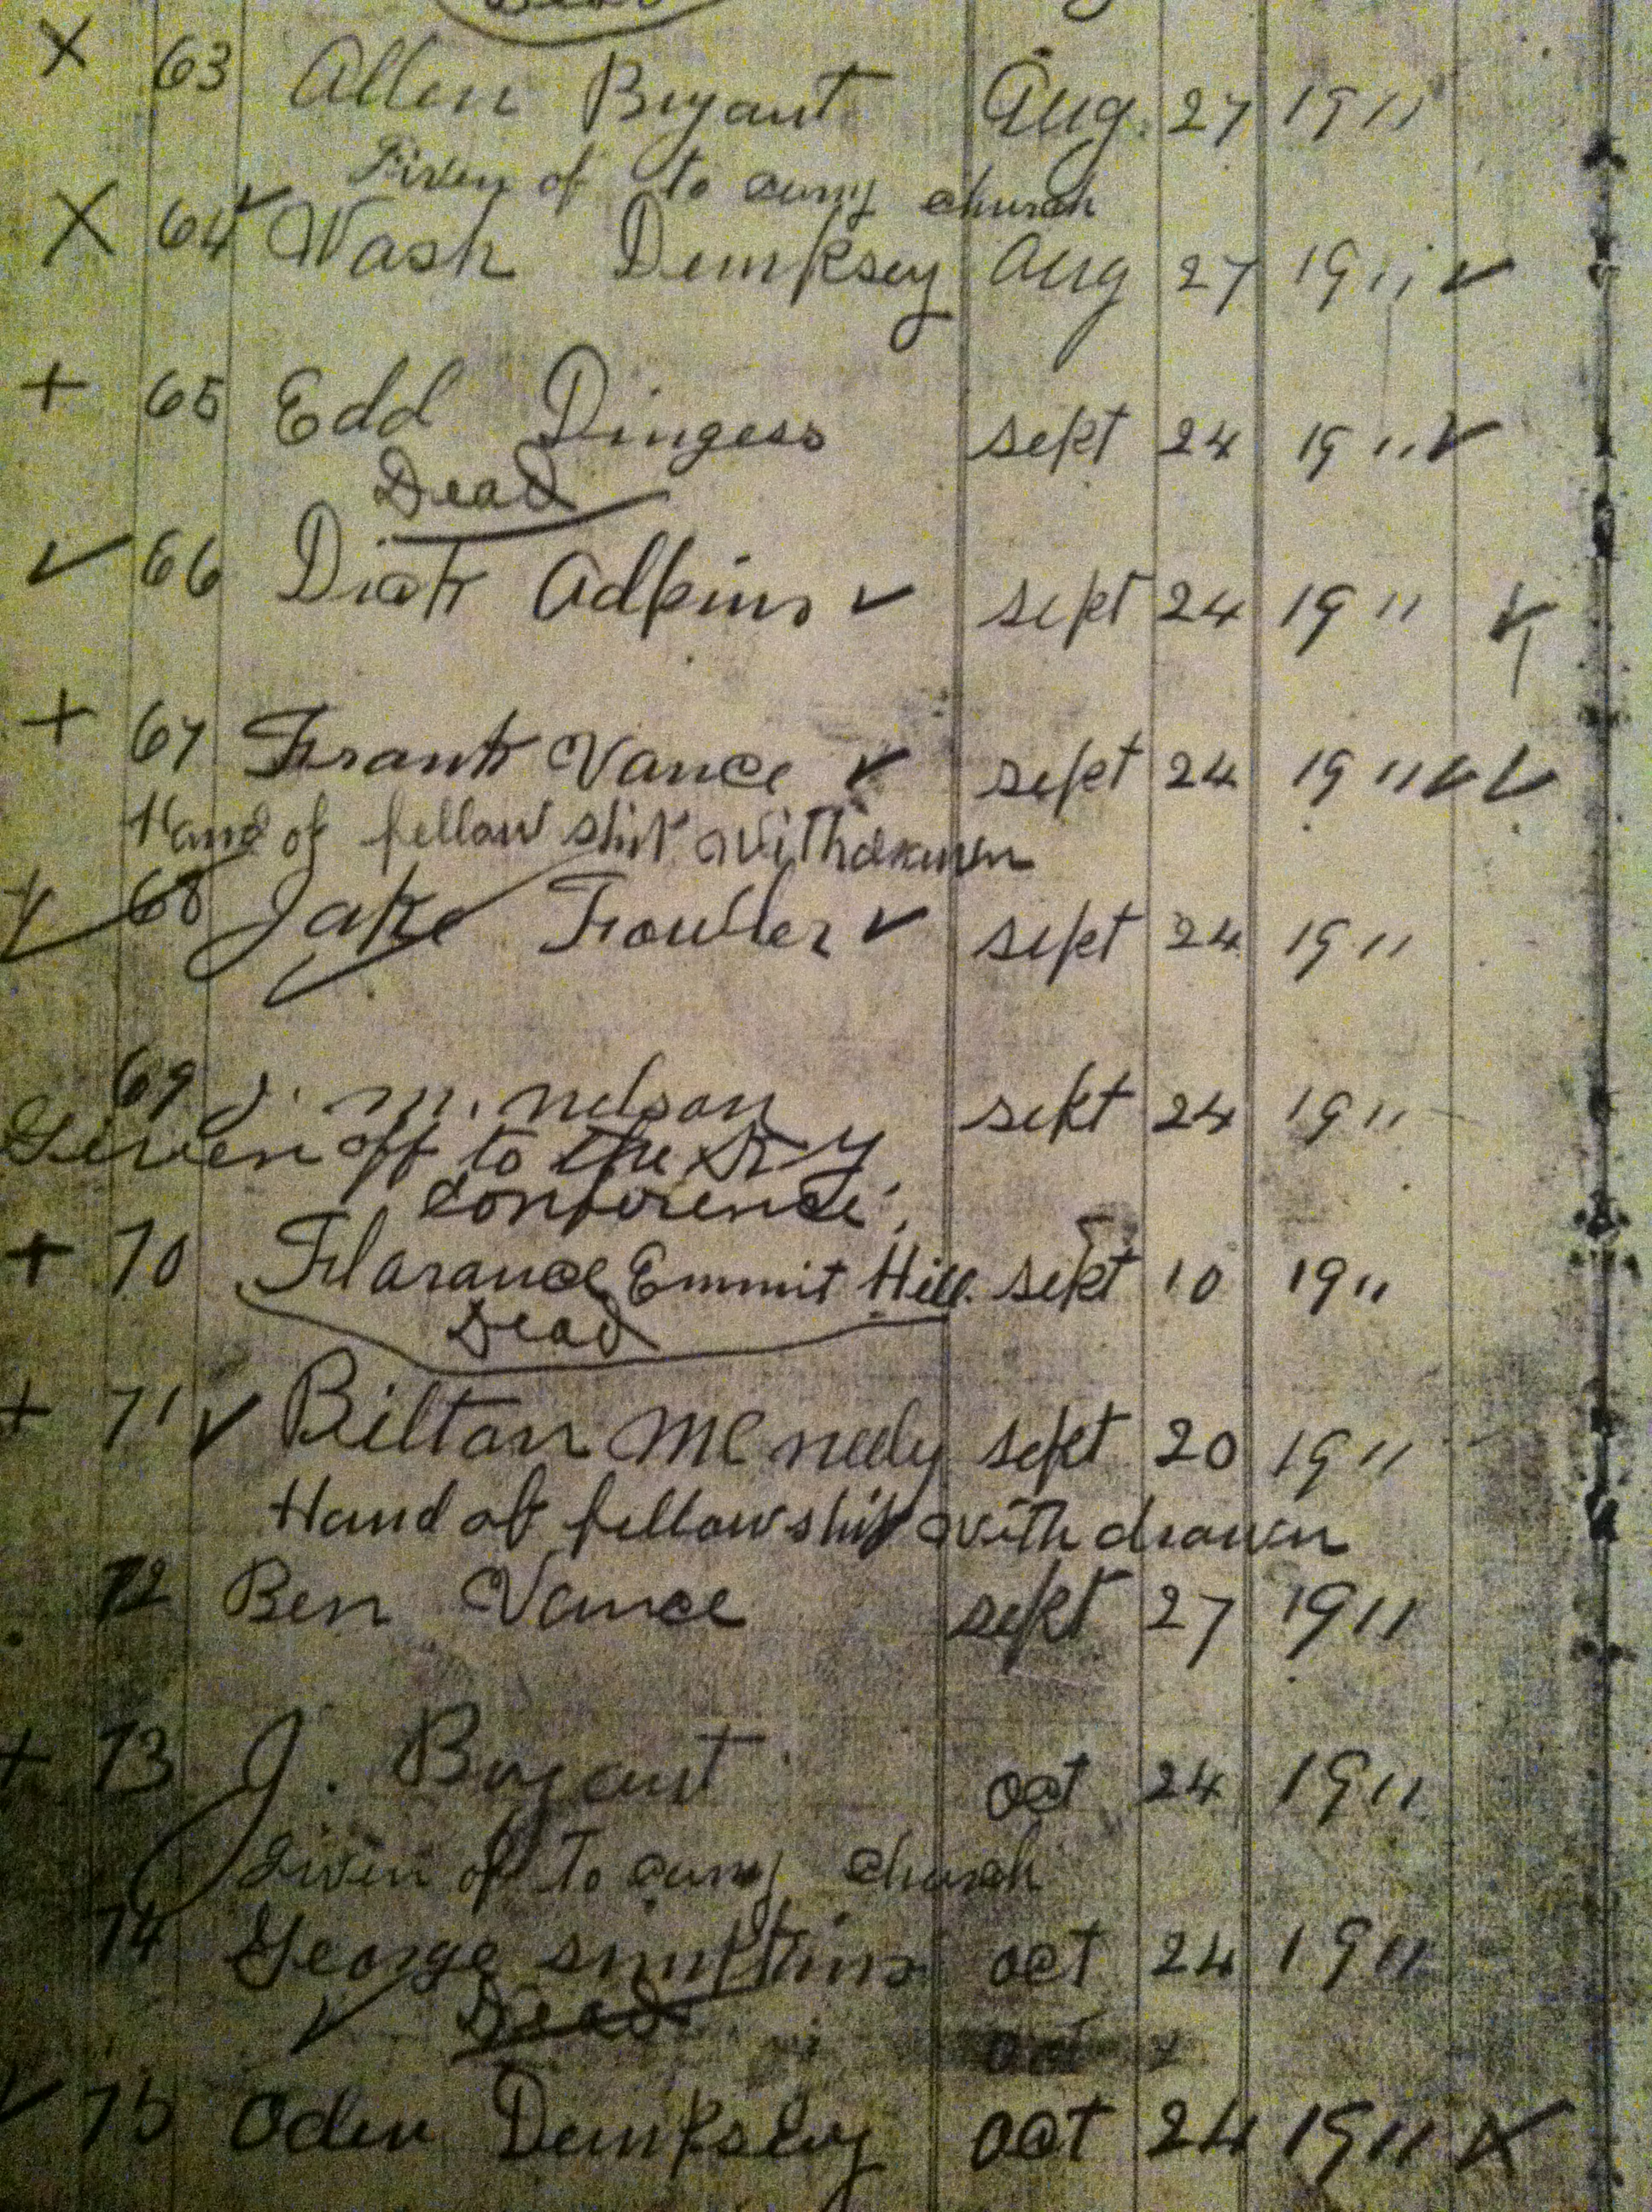 Dead
X 63 Allen Bryant Aug. 27 1911
Given of to curry church
X 64 ✓ Wash Demksey Aug 27 1911 ✓
+ 65 Edd Dingess sept 24 1911 ✓
Dead
✓ 66 Dick Adkins ✓ sept 24 1911 ✓
+ 67 Frank Vance ✓ sept 24 1911 ✓ ✓
Hand of fellow ship withdrawn
+ 68 Jake Fowler ✓ sept 24 1911
69 J. M. nelson sept 24 1911
Given off to the Ky
conference.
+ 70 Flarance Emmit Hill. sept 10 1911
Dead
+ 71 ✓ Biltan Mc neely sept 20 1911
Hand of fellowship with drawn
72 Ben Vance sept 27 1911
+ 73 J. Bryant oct 24 1911
Given of to curry church
74 George simpkins oct 24 1911
✓ Dead
oct
✓ 75 Oden Demksey oct 24 1911 X